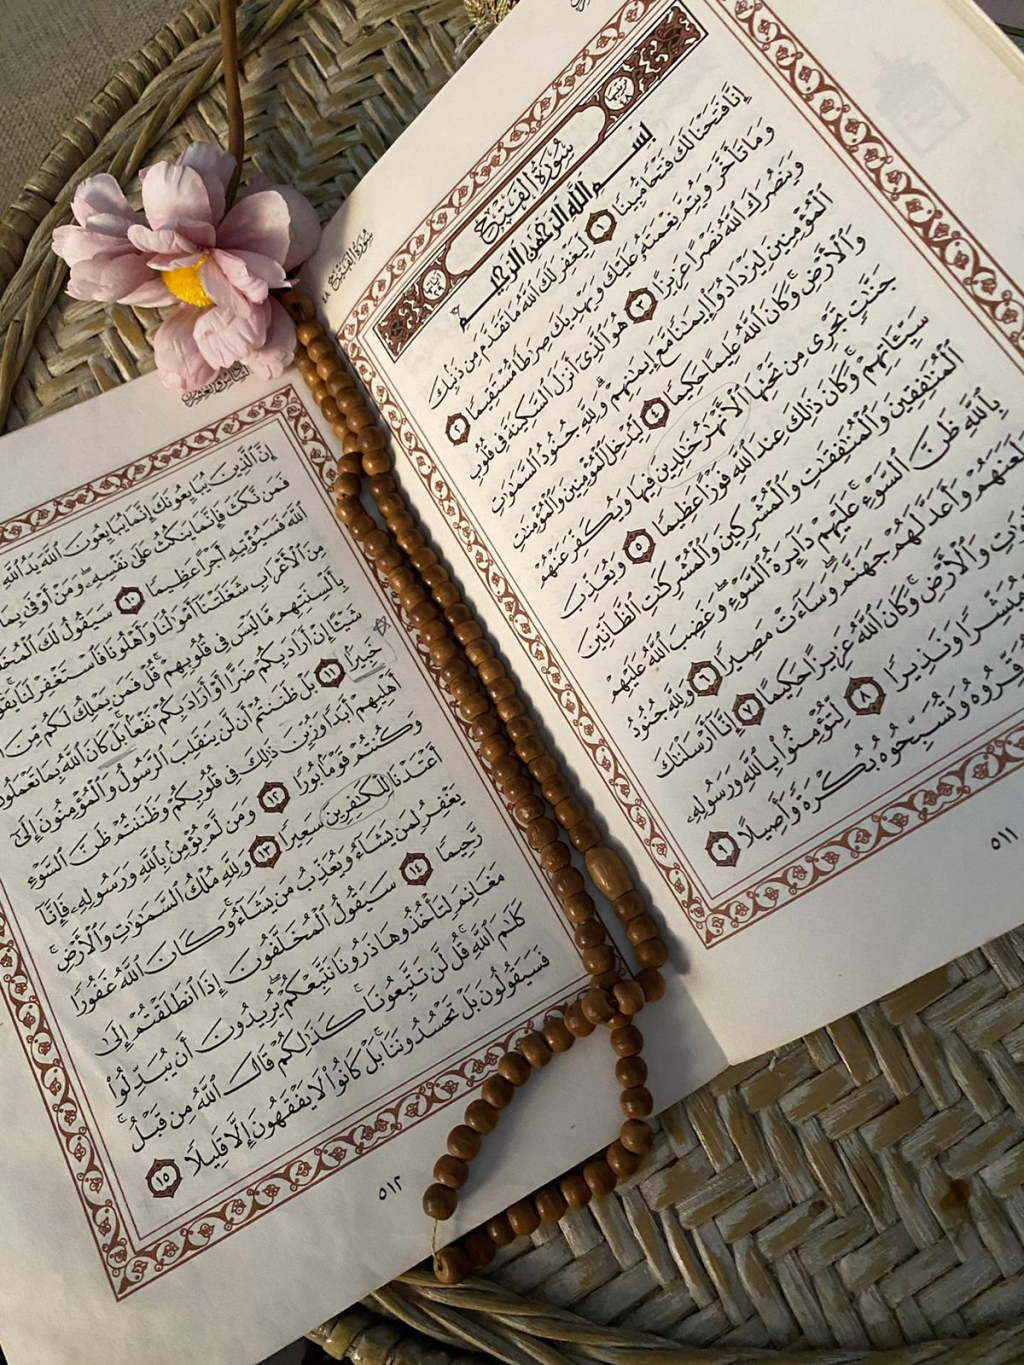 سُورَةُ الفَتْحِ
بِسْمِ اللَّهِ الرَّحْمَٰنِ الرَّحِيمِ
إِنَّا فَتَحْنَا لَكَ فَتْحًا مُّبِينًا ١ لِّيَغْفِرَ لَكَ ٱللَّهُ مَا تَقَدَّمَ مِن ذَنۢبِكَ
وَمَا تَأَخَّرَ وَيُتِمَّ نِعْمَتَهُۥ عَلَيْكَ وَيَهْدِيَكَ صِرَٰطًا مُّسْتَقِيمًا ٢
وَيَنصُرَكَ ٱللَّهُ نَصْرًا عَزِيزًا ٣ هُوَ ٱلَّذِىٓ أَنزَلَ ٱلسَّكِينَةَ فِى قُلُوبِ
ٱلْمُؤْمِنِينَ لِيَزْدَادُوٓا۟ إِيمَٰنًا مَّعَ إِيمَٰنِهِمْ ۗ وَلِلَّهِ جُنُودُ ٱلسَّمَٰوَٰتِ
وَٱلْأَرْضِ ۚ وَكَانَ ٱللَّهُ عَلِيمًا حَكِيمًا ٤ لِّيُدْخِلَ ٱلْمُؤْمِنِينَ وَٱلْمُؤْمِنَٰتِ
جَنَّٰتٍ تَجْرِى مِن تَحْتِهَا ٱلْأَنْهَٰرُ خَٰلِدِينَ فِيهَا وَيُكَفِّرَ عَنْهُمْ
سَيِّـَٔاتِهِمْ ۚ وَكَانَ ذَٰلِكَ عِندَ ٱللَّهِ فَوْزًا عَظِيمًا ٥ وَيُعَذِّبَ
ٱلْمُنَٰفِقِينَ وَٱلْمُنَٰفِقَٰتِ وَٱلْمُشْرِكِينَ وَٱلْمُشْرِكَٰتِ ٱلظَّآنِّينَ
بِٱللَّهِ ظَنَّ ٱلسَّوْءِ ۚ عَلَيْهِمْ دَآئِرَةُ ٱلسَّوْءِ ۖ وَغَضِبَ ٱللَّهُ عَلَيْهِمْ
وَلَعَنَهُمْ وَأَعَدَّ لَهُمْ جَهَنَّمَ ۖ وَسَآءَتْ مَصِيرًا ٦ وَلِلَّهِ جُنُودُ
وَٱلْأَرْضِ ۚ وَكَانَ ٱللَّهُ عَزِيزًا حَكِيمًا ٧ إِنَّآ أَرْسَلْنَٰكَ
وَمُبَشِّرًا وَنَذِيرًا ٨ لِّتُؤْمِنُوا۟ بِٱللَّهِ وَرَسُولِهِۦ
وَتُسَبِّحُوهُ بُكْرَةً وَأَصِيلًا ٩
٥١١
إِنَّ ٱلَّذِينَ يُبَايِعُونَكَ إِنَّمَا يُبَايِعُونَ ٱللَّهَ يَدُ ٱللَّهِ
فَمَن نَّكَثَ فَإِنَّمَا يَنكُثُ عَلَىٰ نَفْسِهِۦ ۖ وَمَنْ أَوْفَىٰ بِمَا
ٱللَّهَ فَسَيُؤْتِيهِ أَجْرًا عَظِيمًا ١٠ سَيَقُولُ لَكَ
مِنَ ٱلْأَعْرَابِ شَغَلَتْنَآ أَمْوَٰلُنَا وَأَهْلُونَا فَٱسْتَغْفِرْ لَنَا
بِأَلْسِنَتِهِم مَّا لَيْسَ فِى قُلُوبِهِمْ ۚ قُلْ فَمَن يَمْلِكُ لَكُم مِّنَ
شَيْـًٔا إِنْ أَرَادَ بِكُمْ ضَرًّا أَوْ أَرَادَ بِكُمْ نَفْعًۢا ۚ بَلْ كَانَ ٱللَّهُ بِمَا تَعْمَلُونَ
خَبِيرًۢا ١١ بَلْ ظَنَنتُمْ أَن لَّن يَنقَلِبَ ٱلرَّسُولُ وَٱلْمُؤْمِنُونَ إِلَىٰٓ
أَهْلِيهِمْ أَبَدًا وَزُيِّنَ ذَٰلِكَ فِى قُلُوبِكُمْ وَظَنَنتُمْ ظَنَّ ٱلسَّوْءِ
وَكُنتُمْ قَوْمًۢا بُورًا ١٢ وَمَن لَّمْ يُؤْمِنۢ بِٱللَّهِ وَرَسُولِهِۦ فَإِنَّآ
أَعْتَدْنَا لِلْكَٰفِرِينَ سَعِيرًا ١٣ وَلِلَّهِ مُلْكُ ٱلسَّمَٰوَٰتِ وَٱلْأَرْضِ ۚ
يَغْفِرُ لِمَن يَشَآءُ وَيُعَذِّبُ مَن يَشَآءُ ۚ وَكَانَ ٱللَّهُ غَفُورًا
رَّحِيمًا ١٤ سَيَقُولُ ٱلْمُخَلَّفُونَ إِذَا ٱنطَلَقْتُمْ إِلَىٰ
مَغَانِمَ لِتَأْخُذُوهَا ذَرُونَا نَتَّبِعْكُمْ ۖ يُرِيدُونَ أَن يُبَدِّلُوا۟
كَلَٰمَ ٱللَّهِ ۚ قُل لَّن تَتَّبِعُونَا كَذَٰلِكُمْ قَالَ ٱللَّهُ مِن قَبْلُ ۖ
فَسَيَقُولُونَ بَلْ تَحْسُدُونَنَا ۚ بَلْ كَانُوا۟ لَا يَفْقَهُونَ إِلَّا قَلِيلًا ١٥
٥١٢